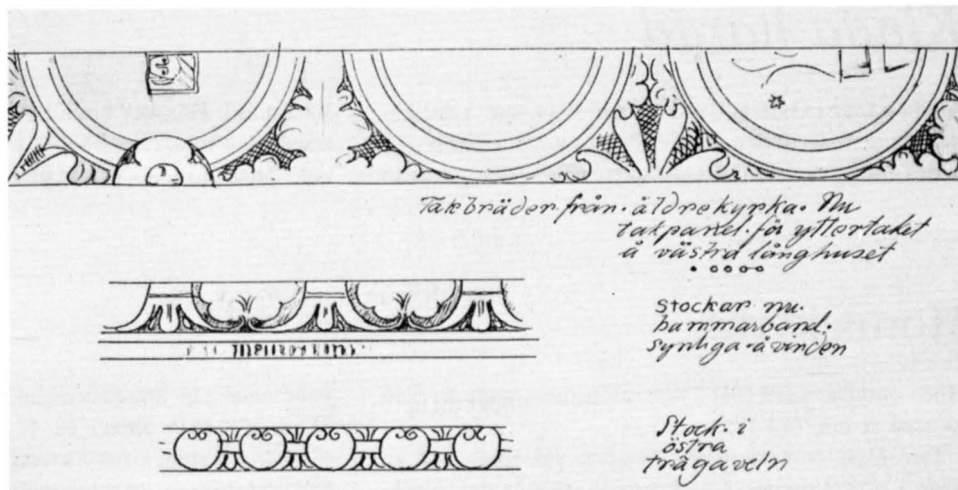 Takbräder från äldre kyrka. Nu
takpanel för yttertaket
å västra långhuset
Stockar nu
hammarband.
synliga å vinden
Stock i
östra
trägaveln